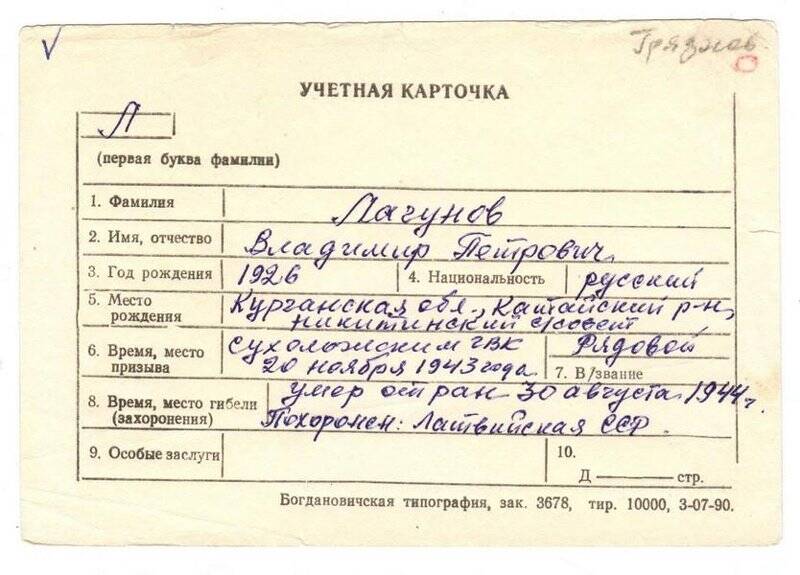 Грязнов
УЧЕТНАЯ КАРТОЧКА
Л
(первая буква фамилии)
1. Фамилия Лагунов
2. Имя, отчество Владимир Петрович
3. Год рождения 1926 4. Национальность русский
5. Место рождения Курганская обл., Катайский р-н,
никитинский с/совет
6. Время, место призыва сухоложским ГВК
20 ноября 1943 года
Рядовой
7. В/звание
8. Время, место гибели (захоронения) умер от ран 30 августа 1944 г.
Похоронен: Латвийская ССР.
9. Особые заслуги
10.
Д ——— стр.
Богдановичская типография, зак. 3678, тир. 10000, 3-07-90.